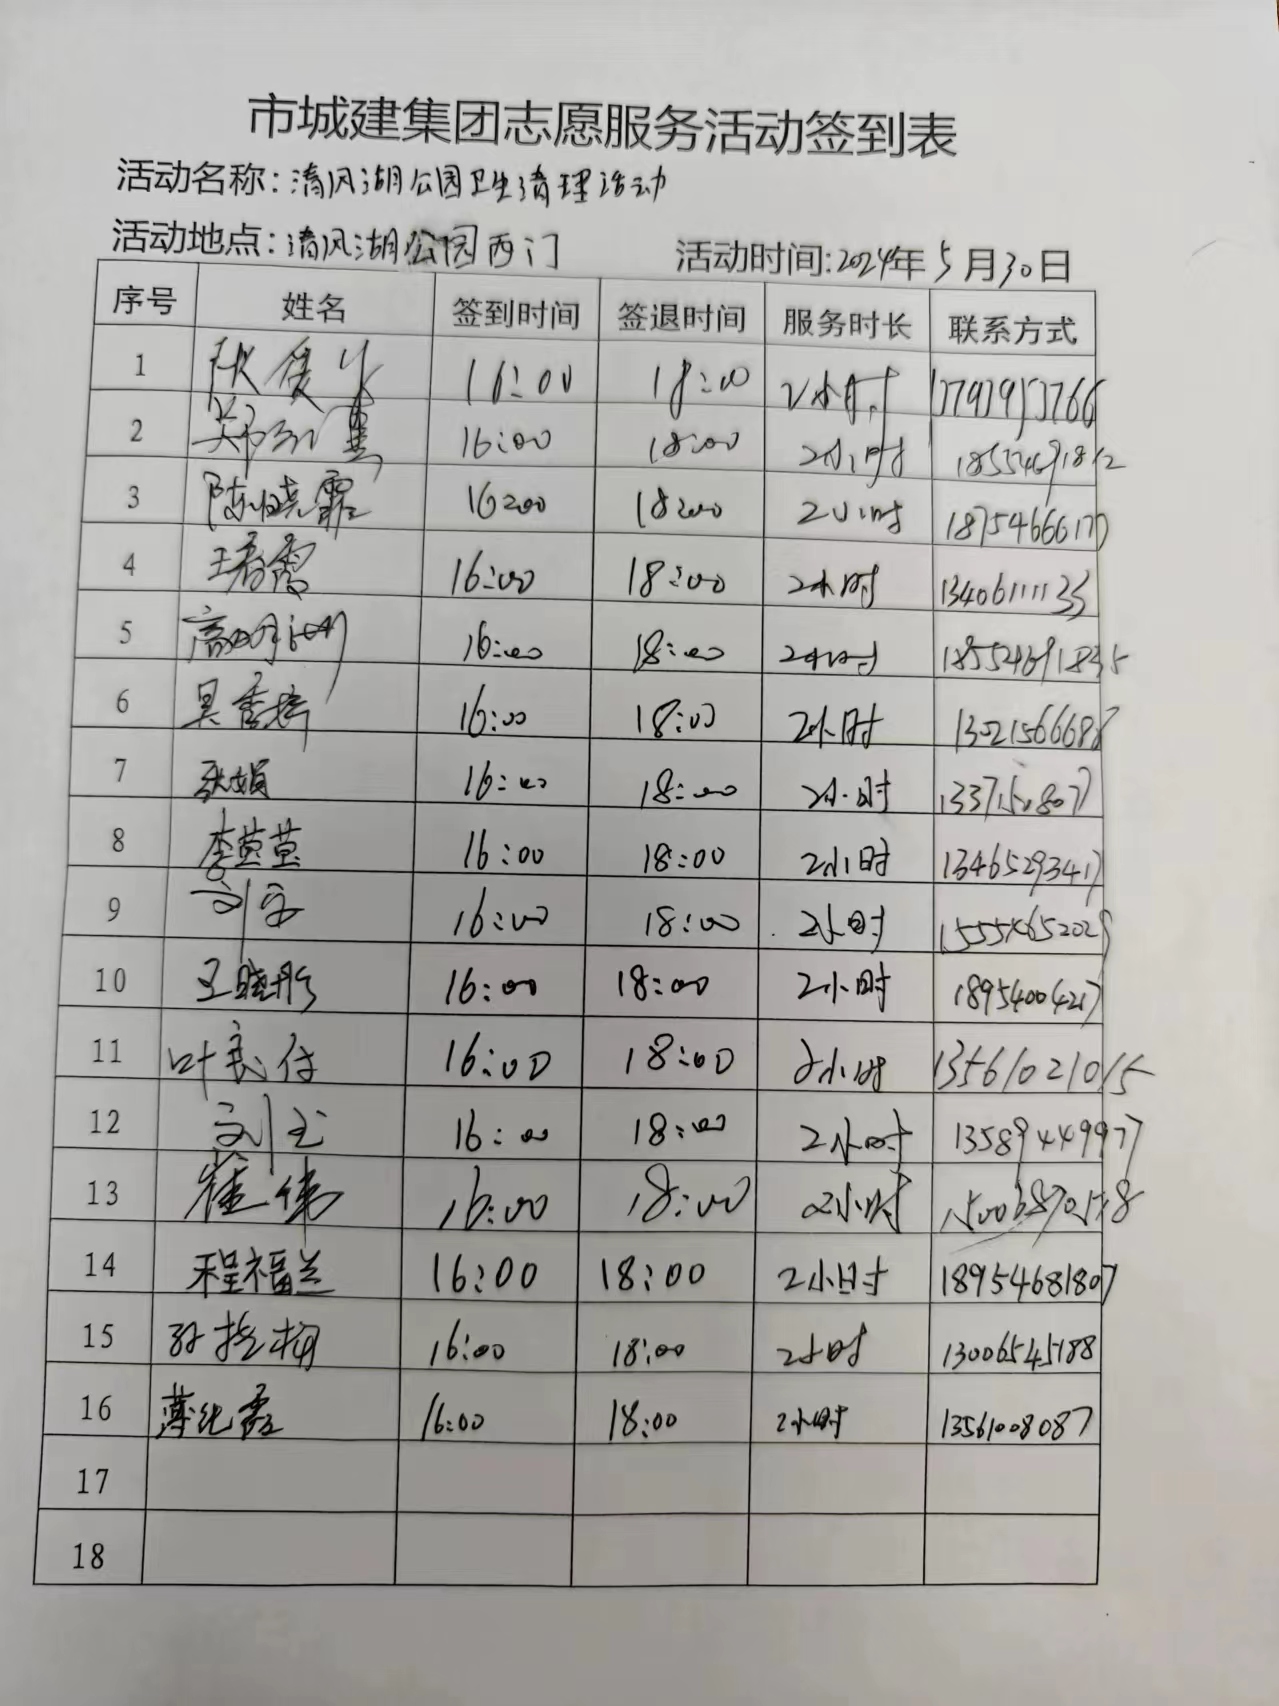 市城建集团志愿服务活动签到表
活动名称:清风湖公园卫生清理活动
活动地点:清风湖公园西门 活动时间:2024年5月30日
序号 姓名 签到时间 签退时间 服务时长 联系方式
1 16:00 18:00 2小时
2 16:00 18:00 2小时
3 陈晓霏 16:00 18:00 2小时 18754666177
4 王春霞 16:00 18:00 2小时 13406111133
5 16:00 18:00 2小时 18552491835
6 吴香梅 16:00 18:00 2小时 13021566688
7 耿娟 16:00 18:00 2小时
8 李莹莹 16:00 18:00 2小时 13465293417
9 刘宁 16:00 18:00 2小时
10 王晓彤 16:00 18:00 2小时 18954004217
11 叶良付 16:00 18:00 2小时 13561021015
12 刘玉 16:00 18:00 2小时 13589449977
13 崔伟 16:00 18:00 2小时
14 程福兰 16:00 18:00 2小时 18954681807
15 16:00 18:00 2小时 13006545188
16 薄纯霞 16:00 18:00 2小时 13561008087
17
18